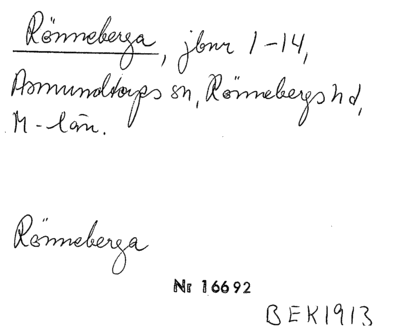 Rönneberga, jbnr 1-14,
Asmundtorps sn, Rönnebergs hd,
M-län.
Rönneberga
Nr 16692
BEK1913